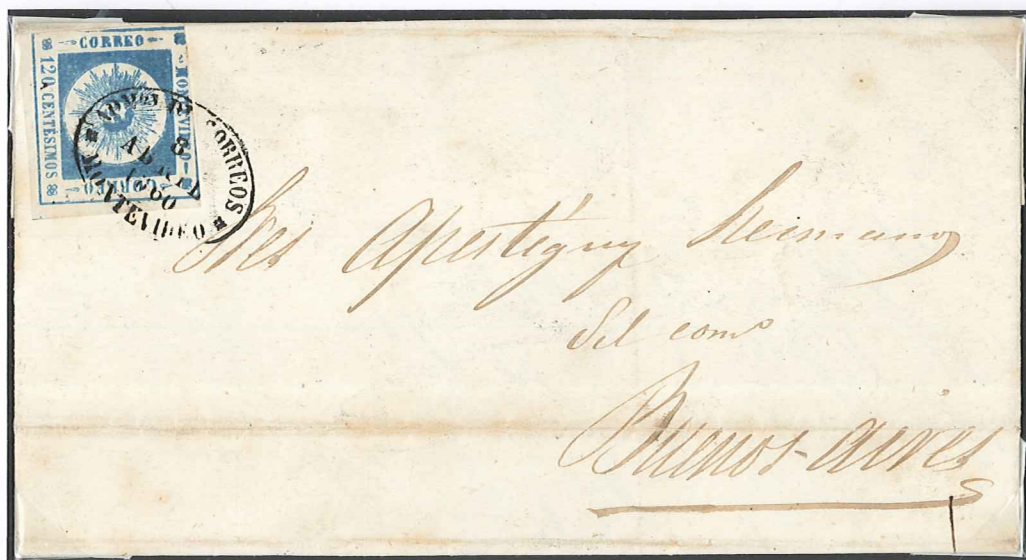 CORREO
MONTEVIDEO
120 CENTESIMOS
CORREO
ADMON DE CORREOS
8
ABRIL
1860
MONTEVIDEO
Sres Apestéguy hermanos
del como
Buenos-aires